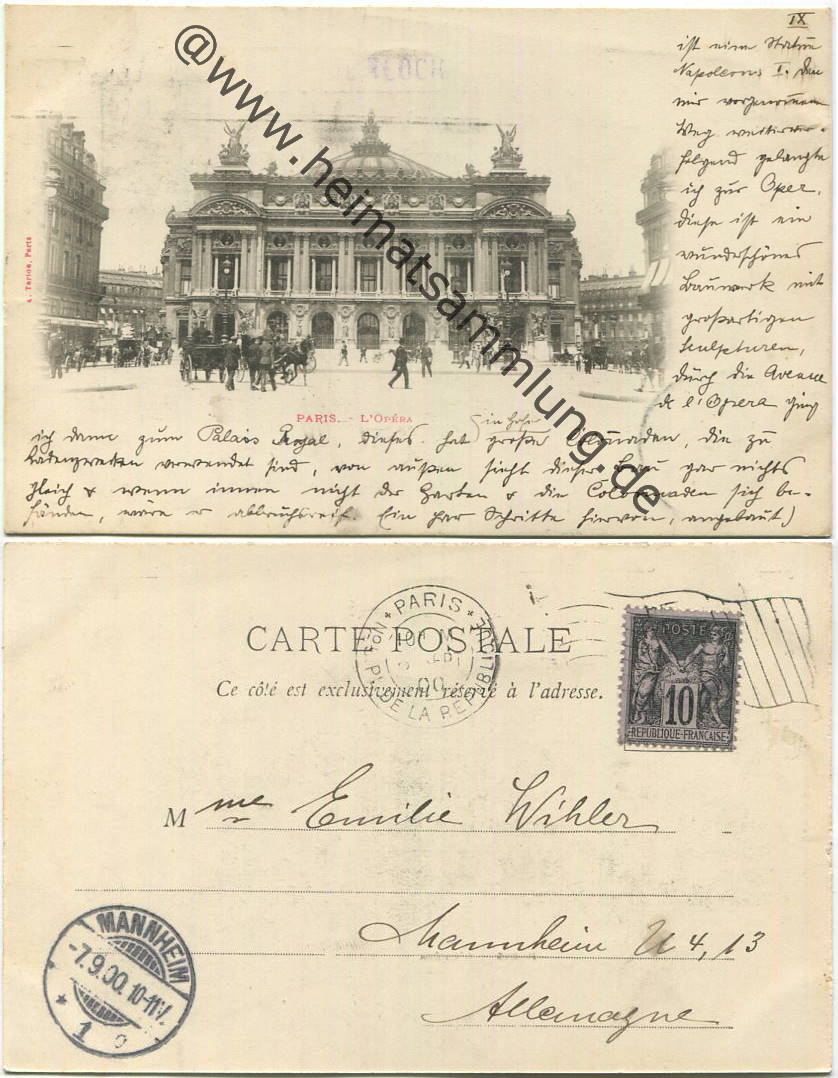 IX
ist eine Statue
Napoleons I. Den
mir vorgenommenen
Weg weiterver-
folgend gelangte
ich zur Oper,
diese ist ein
wunderschönes
Bauwerk mit
großartigen
Sculpturen,
durch die Avenue
de l'Opera ging
A. Taride, Paris
PARIS. - L'OPÉRA
ich dann zum Palais Royal, dieses hat große Colonaden, die zu
Ladenzwecken verwendet sind, von außen sieht dieser Bau gar nichts
gleich & wenn innen nicht der Garten & die Colonnaden sich be-
fänden, wäre er abbruchsreif. Ein paar Schritte hiervon, angebaut)
@www.heimatsammlung.de
CARTE POSTALE
Ce côté est exclusivement réservé à l'adresse.
PARIS
PL. DE LA REPUBLIQUE
00
POSTES
10
REPUBLIQUE FRANÇAISE
Mme Emilie Wihler
Mannheim U 4, 13
Allemagne
MANNHEIM
-7.9.00.10-11V.
* 1 c